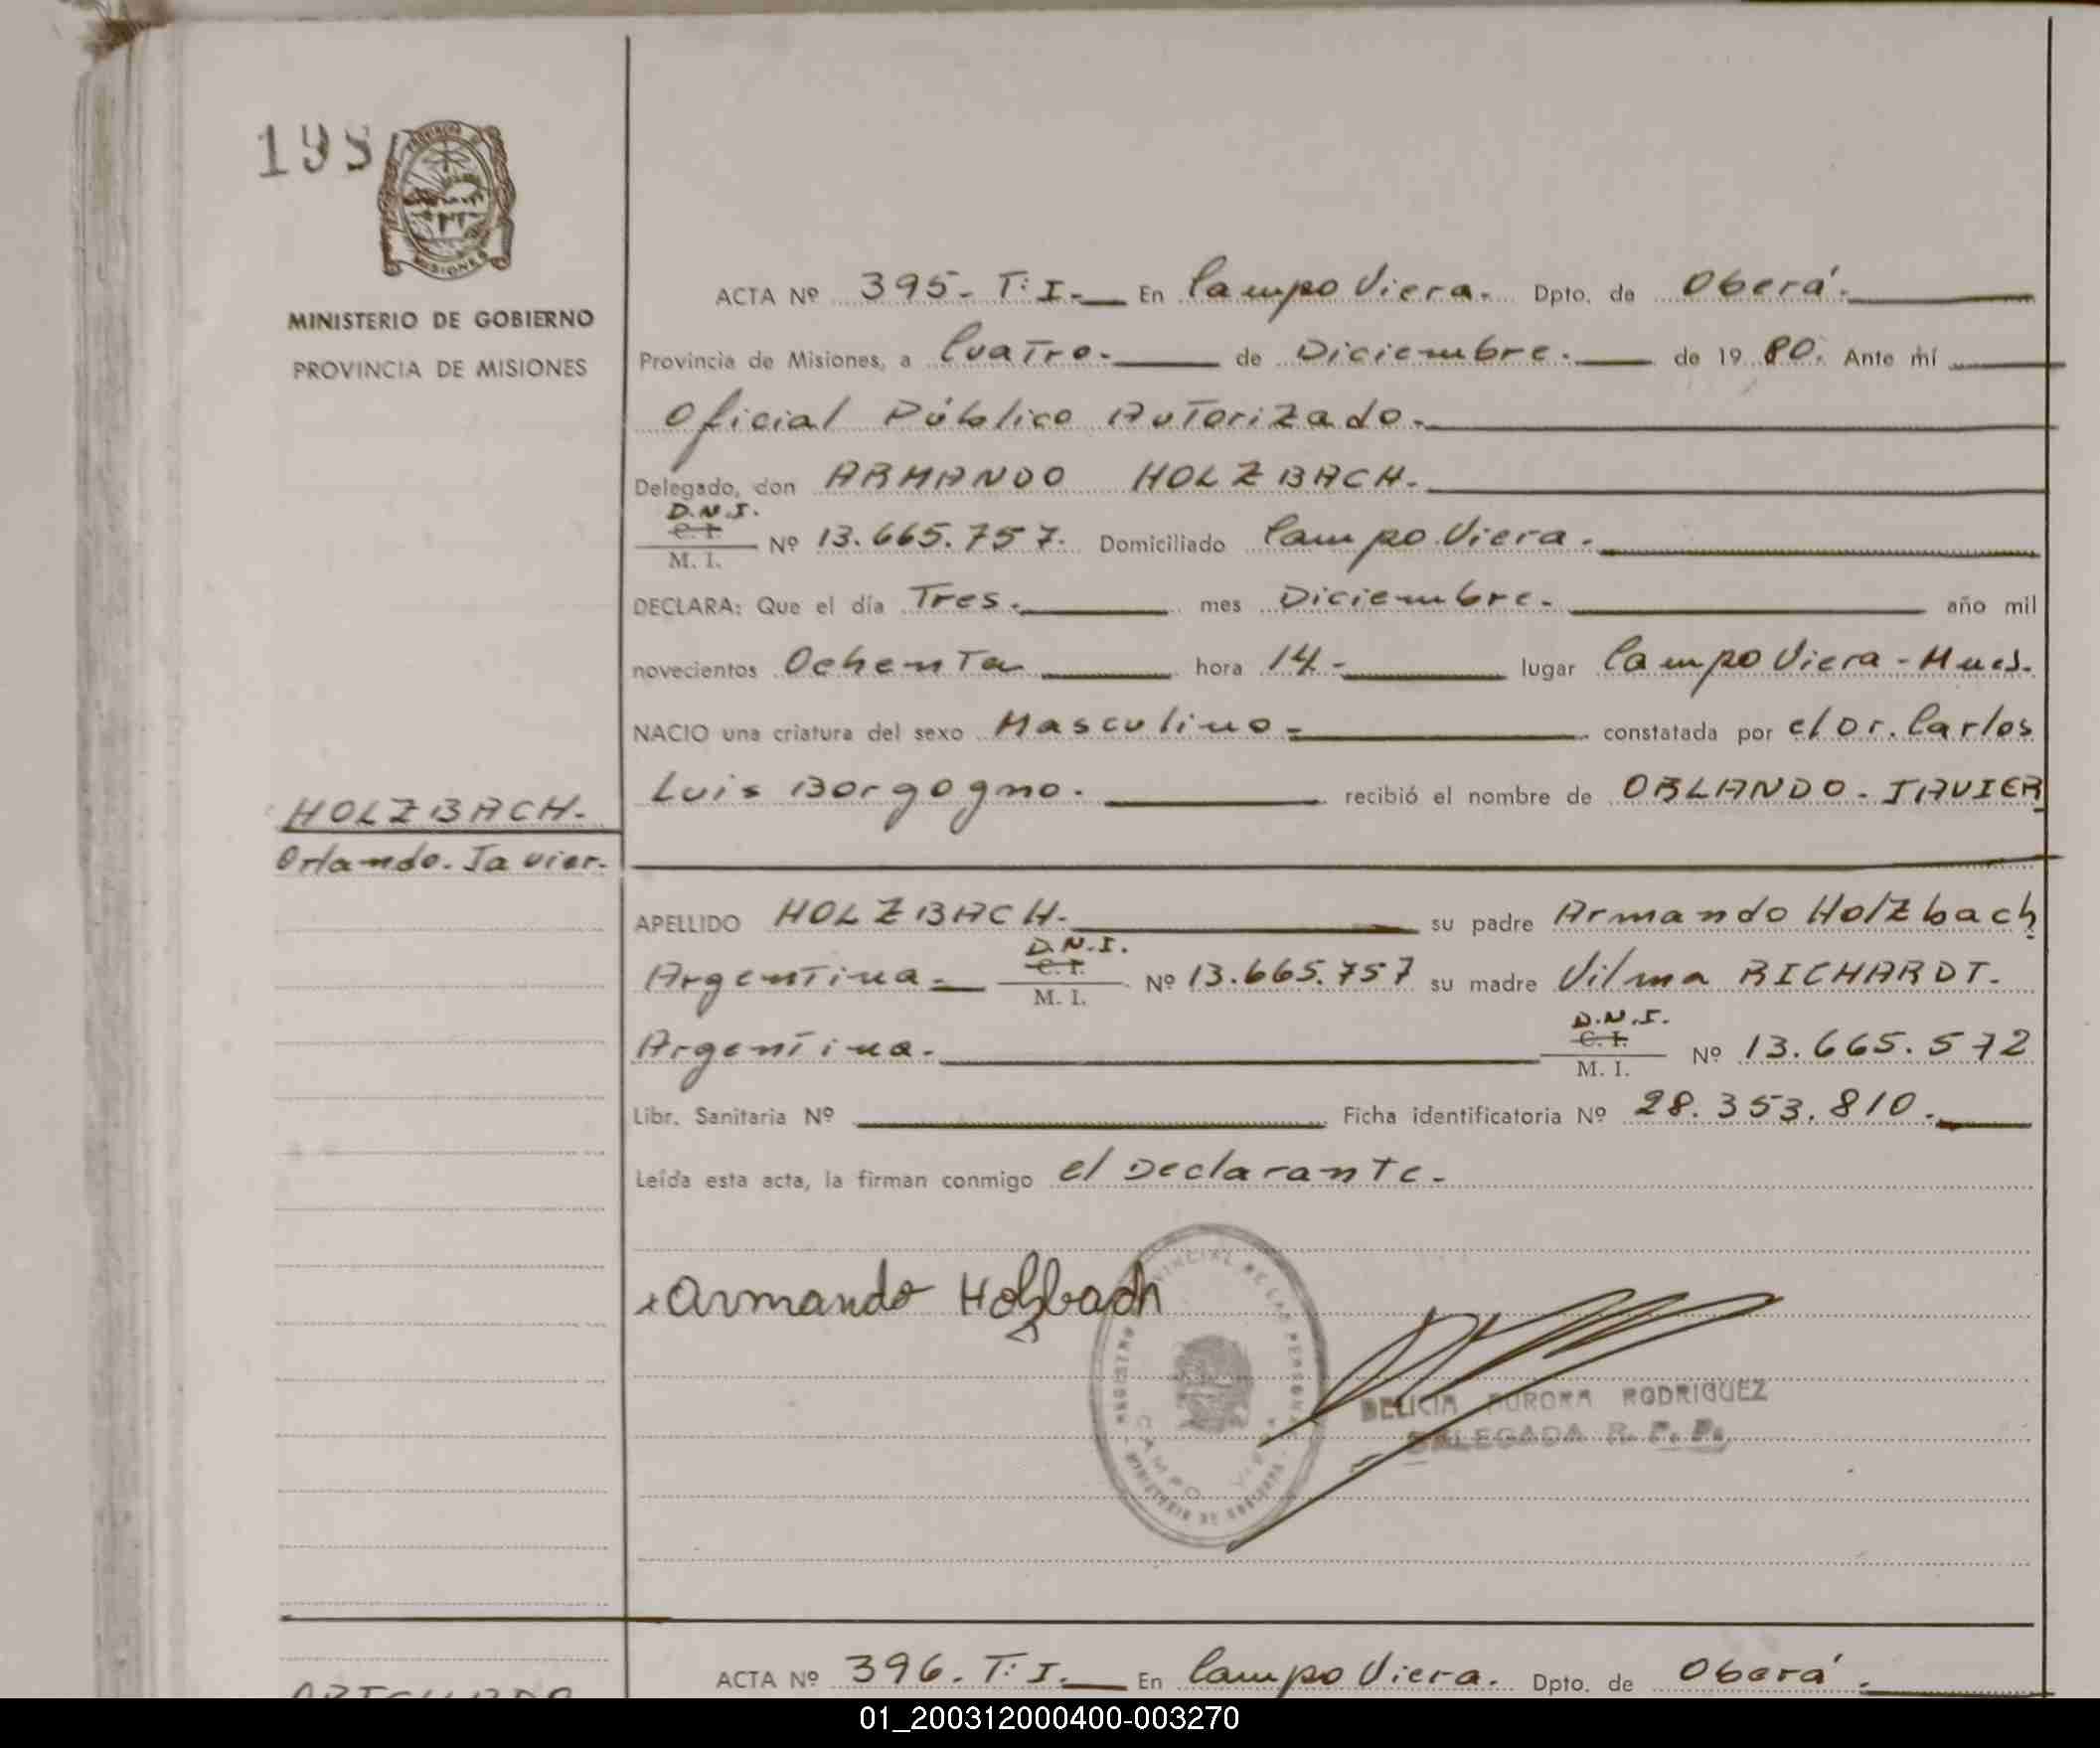 198
MINISTERIO DE GOBIERNO
PROVINCIA DE MISIONES
HOLZBACH.
Orlando. Javier.
ACTA Nº 395- T: I. En Campo Viera. Dpto. de Oberá.
Provincia de Misiones, a Cuatro. de Diciembre. de 19 80. Ante mí
Oficial Público Autorizado.
Delegado, don ARMANDO HOLZBACH.
D.N.I.
C. I.
M. I. Nº 13.665.757. Domiciliado Campo Viera.
DECLARA: Que el día Tres. mes Diciembre. año mil
novecientos Ochenta hora 14.- lugar Campo Viera - Mnes.
NACIO una criatura del sexo Masculino constatada por el Dr. Carlos
Luis Borgogno. recibió el nombre de ORLANDO. JAVIER
APELLIDO HOLZBACH. su padre Armando Holzbach
Argentina. D.N.I. C. I. M. I. Nº 13.665.757 su madre Vilma RICHARDT.
Argentina. D.N.I. C. I. M. I. Nº 13.665.572
Libr. Sanitaria Nº Ficha identificatoria Nº 28.353.810.
Leída esta acta, la firman conmigo el Declarante.
Armando Holzbach
DELICIA AURORA RODRIGUEZ
DELEGADA R. P. P.
ACTA Nº 396. T: I. En Campo Viera. Dpto. de Oberá.
01_200312000400-003270